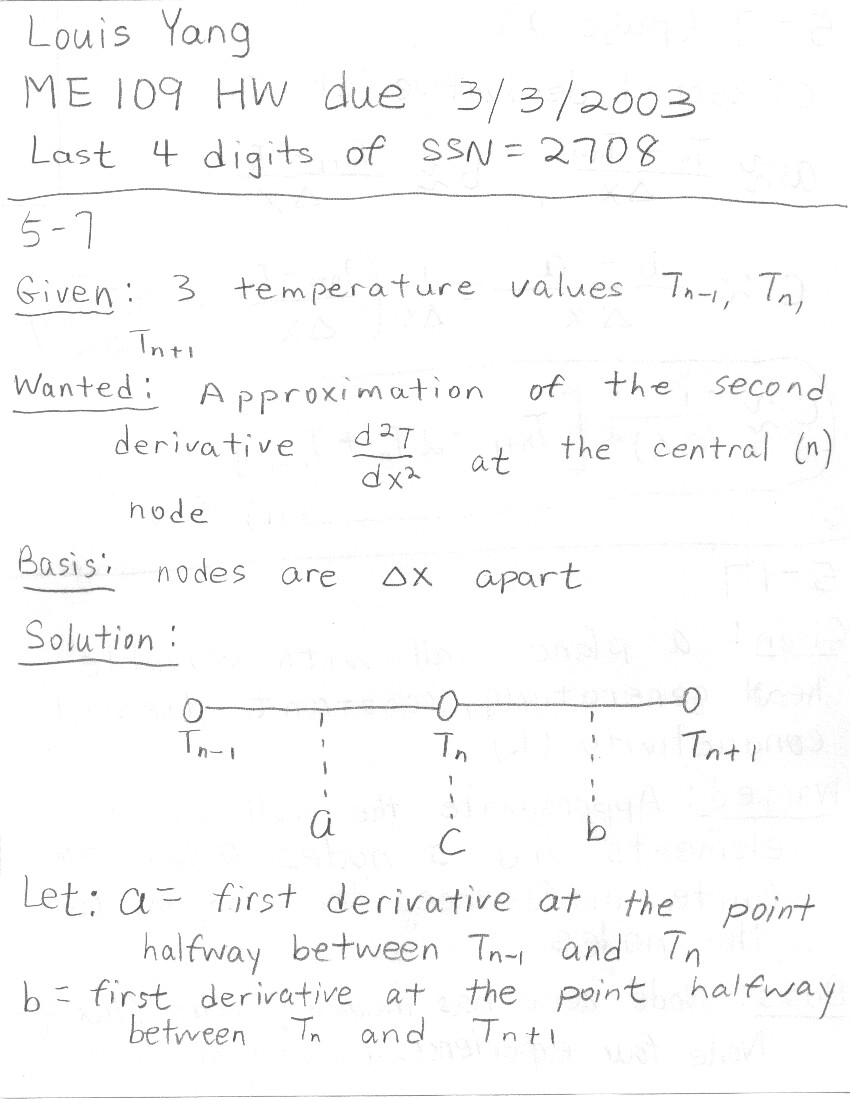 Louis Yang
ME 109 HW due 3/3/2003
Last 4 digits of SSN = 2708
5-7
Given: 3 temperature values Tn-1, Tn,
Tn+1
Wanted: Approximation of the second
derivative d²T/dx² at the central (n)
node
Basis: nodes are Δx apart
Solution:
Tn-1 Tn Tn+1
a c b
Let: a = first derivative at the point
halfway between Tn-1 and Tn
b = first derivative at the point halfway
between Tn and Tn+1